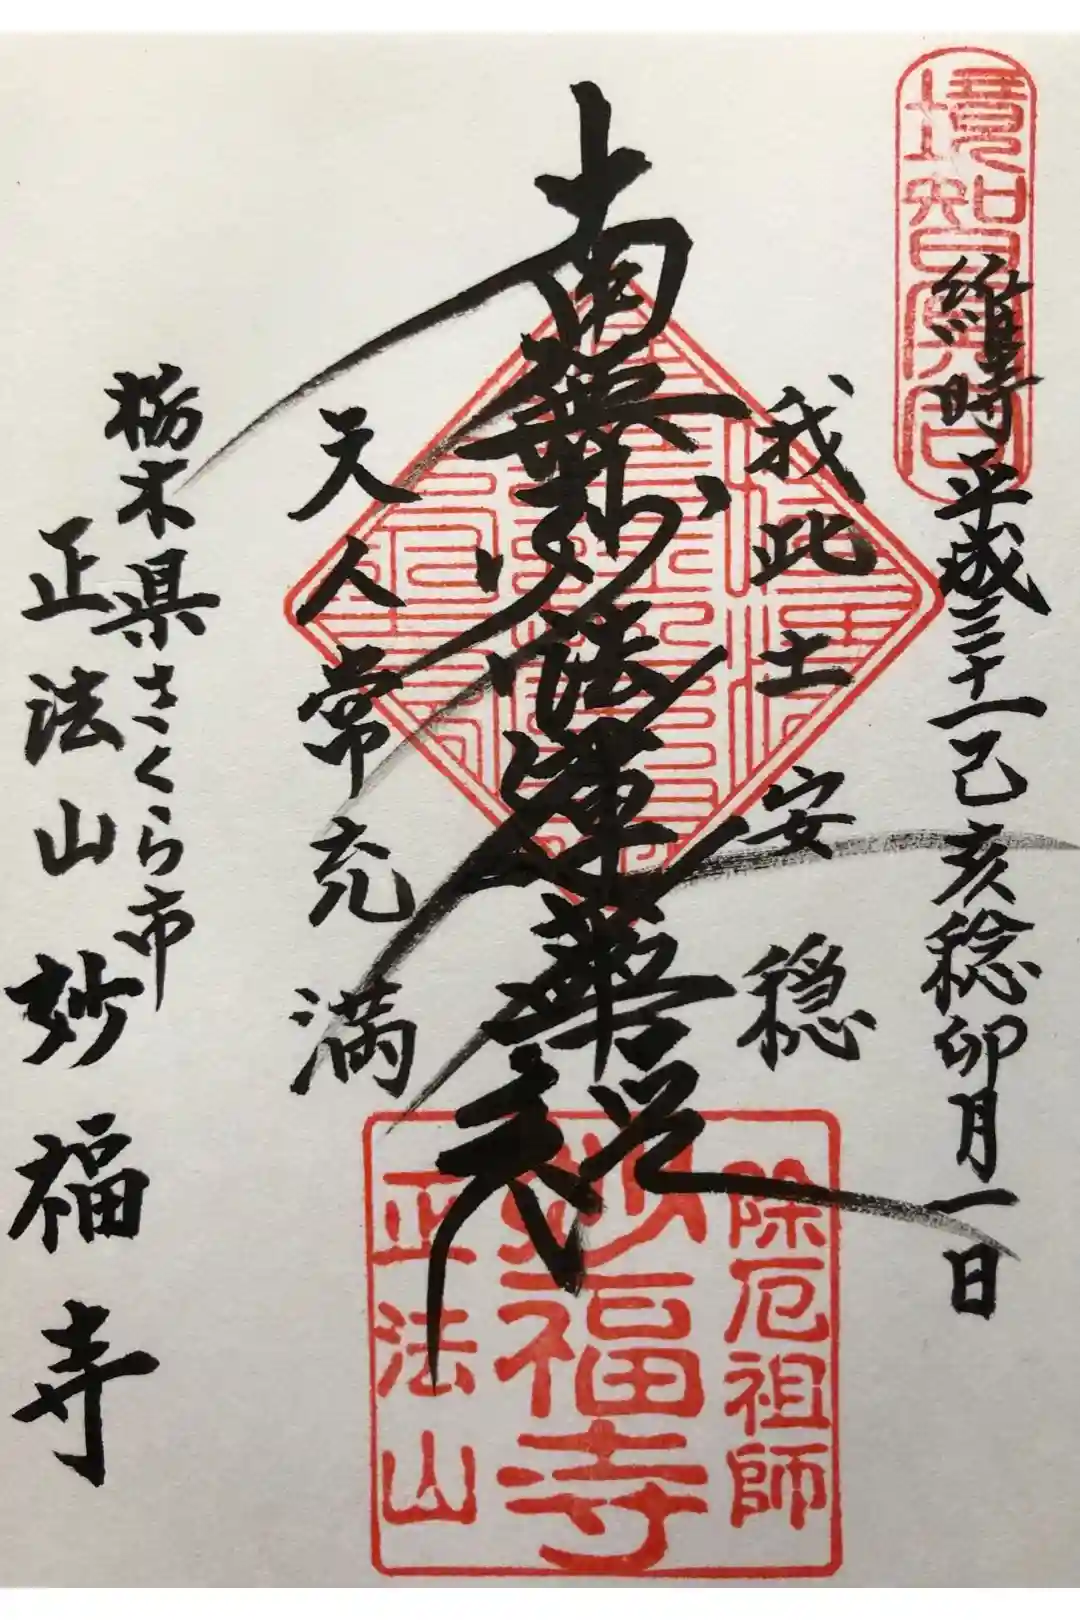 境知冥合
維時平成三十一己亥稔卯月一日
我此土安穏
南無妙法蓮華経
天人常充満
栃木県さくら市
正法山妙福寺
除厄祖師
妙福寺
正法山